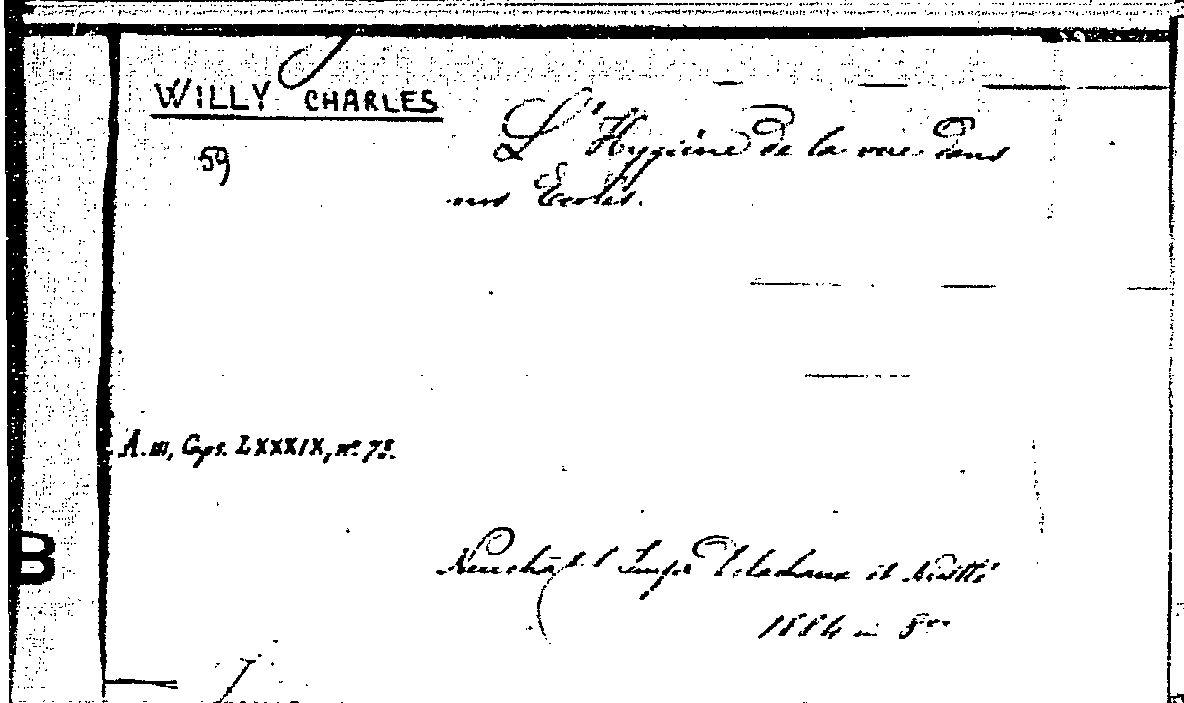 WILLY CHARLES
59
L'Hygiène de la voie dans
nos Ecoles.
A. III, Cps. LXXXIX, nº 75.
B
Neuchâtel Impr Delachaux et Niestlé
1884 in 8vo